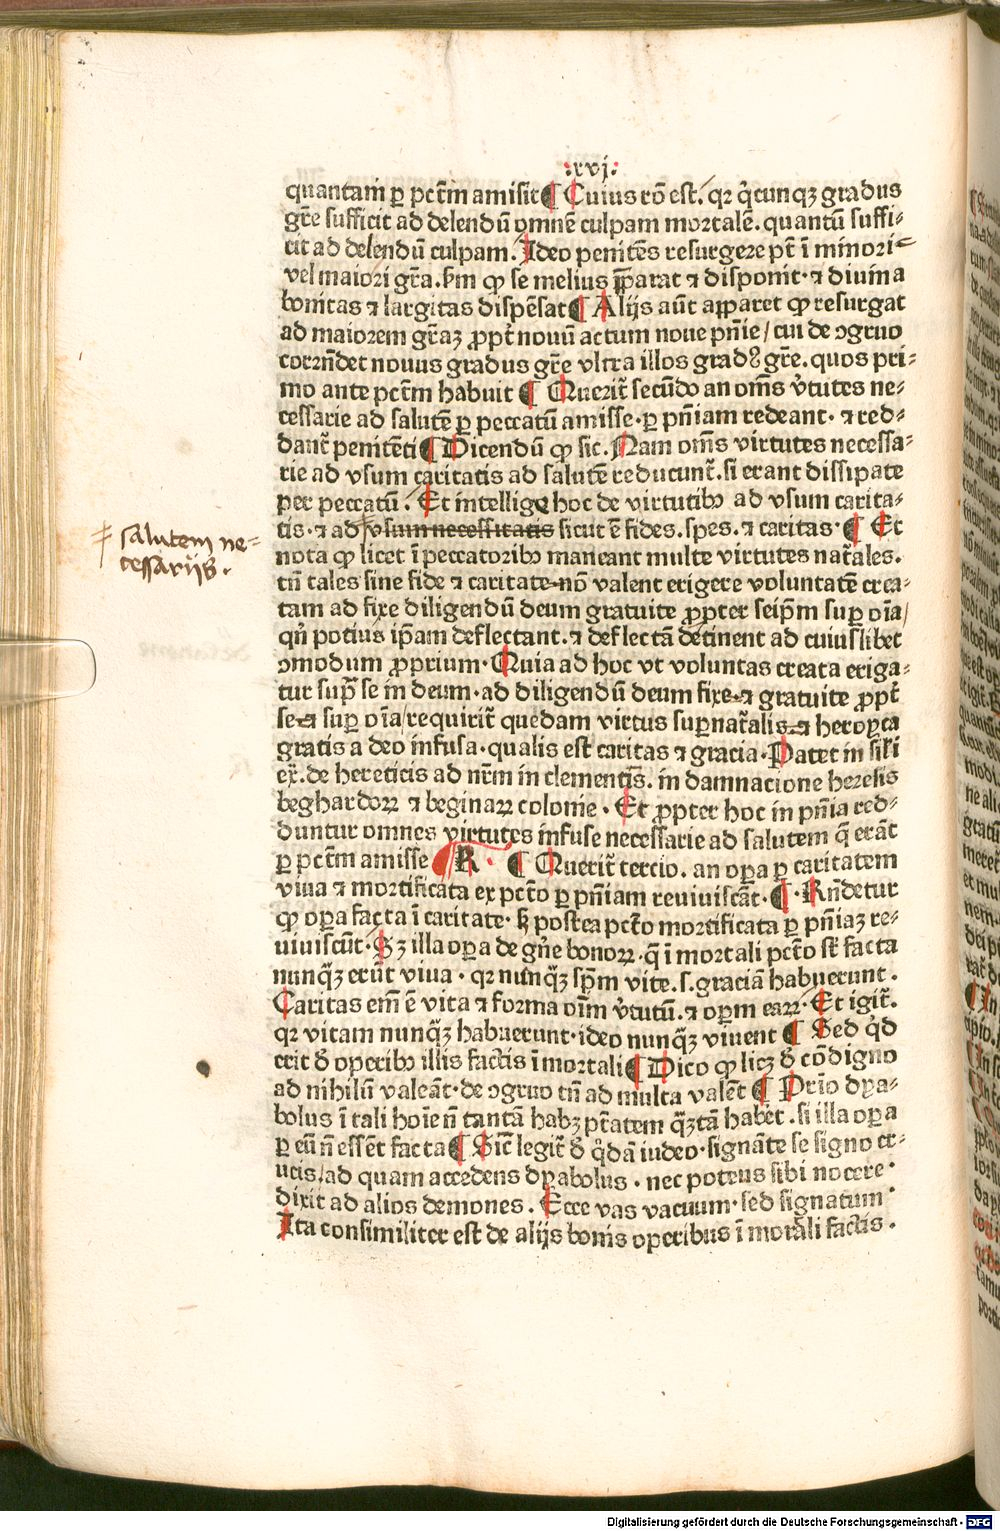 :xvj:
quantam ꝑ pctm̄ amisit ¶ Cuius rō est. qꝛ q̊cunqꝫ gradus
gr̄e sufficit ad delendū omnē culpam mortalē. quantū suffi⸗
cit ad delendū culpam. Ideo penitēs resurgere pt̄ ī minori
vel maiori gr̄a. ẜm ꝙ se melius p̄parat ⁊ disponit · ⁊ diuina
bonitas ⁊ largitas dispēsat ¶ Alijs aūt apparet ꝙ resurgat
ad maiorem gr̄aꝫ ꝓpt̄ nouū actum noue pn̄ie / cui de ꝯgruo
corrn̄det nouus gradus gr̄e vltra illos gradꝰ gr̄e. quos pri⸗
mo ante pctm̄ habuit ¶ Querit̄ secūdo an om̄s v̓tutes ne⸗
cessarie ad salutē ꝑ peccatū amisse · ꝑ pn̄iam redeant · ⁊ red⸗
dant̄ penitēti ¶ Dicendū ꝙ sic. Nam om̄s virtutes necessa⸗
rie ad vsum caritatis ad salutē reducunt̄. si erant dissipate
per peccatū. Et intellige hoc de virtutibꝫ ad vsum carita⸗
tis · ⁊ ad vsum necessitatis sicut ē fides. spes. ⁊ caritas · ¶ Et
salutem ne⸗
cessarijs.
nota ꝙ licet ī peccatoribꝫ maneant multe virtutes nat̄ales.
tn̄ tales sine fide ⁊ caritate nō valent erigere voluntatē crea⸗
tam ad fixe diligendū deum gratuite ꝓpter seip̄m suꝑ oīa /
qn̄ potius ip̄am deflectant. ⁊ deflectā detinent ad cuiuslibet
ꝯmodum ꝓprium · Quia ad hoc vt voluntas creata eriga⸗
tur sup̄ se in deum · ad diligendū deum fixe ⁊ gratuite ꝓpt̄
se ⁊ suꝑ oīa / requirit̄ quedam virtus suꝑnat̄alis ⁊ heroyca
gratis a deo infusa · qualis est caritas ⁊ gracia · Patet in sil̄i
ex̄. de hereticis ad nr̄m in clementīs. in damnacione heresis
beghardoꝝ ⁊ beginaꝝ colonie · Et ꝓpter hoc in pn̄ia red⸗
duntur omnes virtutes infuse necessarie ad salutem q̄ erāt
ꝑ pctm̄ amisse R · ¶ Querit̄ tercio. an oꝑa ꝑ caritatem
viua ⁊ mortificata ex pctō ꝑ pn̄iam reuiuiscāt · ¶ · Rn̄detur
ꝙ oꝑa facta ī caritate · sꝫ postea pctō mortificata ꝑ pn̄iaꝫ re⸗
uiuiscūt · Sꝫ illa oꝑa de gn̄e bonoꝝ · q̄ ī mortali pctō st̄ facta
nunq̄ꝫ erūt viua · qꝛ nunq̄ꝫ sp̄m vite. s. graciā habuerunt ·
Caritas em̄ ē vita ⁊ forma oīm v̓tutū. ⁊ oꝑm earꝝ · Et igit̄.
qꝛ vitam nunq̄ꝫ habuerunt · ideo nunq̄ꝫ viuent ¶ Sed q̊d
erit ď operibꝫ illis factis ī mortali ¶ Dico ꝙ licꝫ ď cōdigno
ad nihilū valeāt · de ꝯgruo tn̄ ad multa valēt ¶ Prīo dya⸗
bolus ī tali hoīe n̄ tantā habꝫ pt̄atem q̄ꝫtā habēt. si illa oꝑa
ꝑ eū n̄ essēt facta ¶ Sic̄ legit̄ ď q̊dā iudeo · signāte se signo cr⸗
ucis. ad quam accedens dyabolus · nec potens sibi nocere ·
dixit ad alios demones. Ecce vas vacuum · sed signatum ·
Ita consimiliter est de alijs bonis operibus ī mortali factis ·
Digitalisierung gefördert durch die Deutsche Forschungsgemeinschaft - DFG